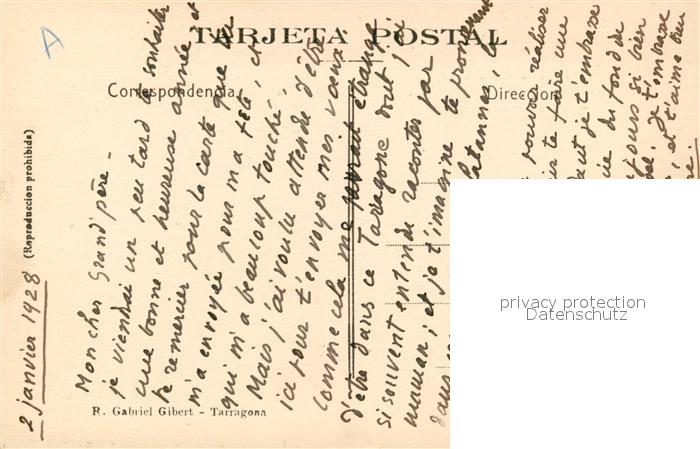 A
TARJETA POSTAL
Correspondencia
Direccion
(Reproduccion prohibida)
R. Gabriel Gibert - Tarragona
2 janvier 1928
Mon cher Grand père -
je viendrai un peu tard te souhaiter
une bonne et heureuse année et
te remercier pour la carte que tu
m'a envoyée pour ma fête, et
qui m'a beaucoup touché.
Mais j'ai voulu attendre d'être
ici pour t'envoyer mes vœux
comme cela me parait étrange
d'être dans ce Tarragone dont j'ai
si souvent entendu raconter par
maman; et je t'imagine te promenant
dans platannes,
pouvoir réaliser
te faire une
je t'embrasse
du fond du
jours si bien
je t'embrasse
et t'aime bien
privacy protection
Datenschutz